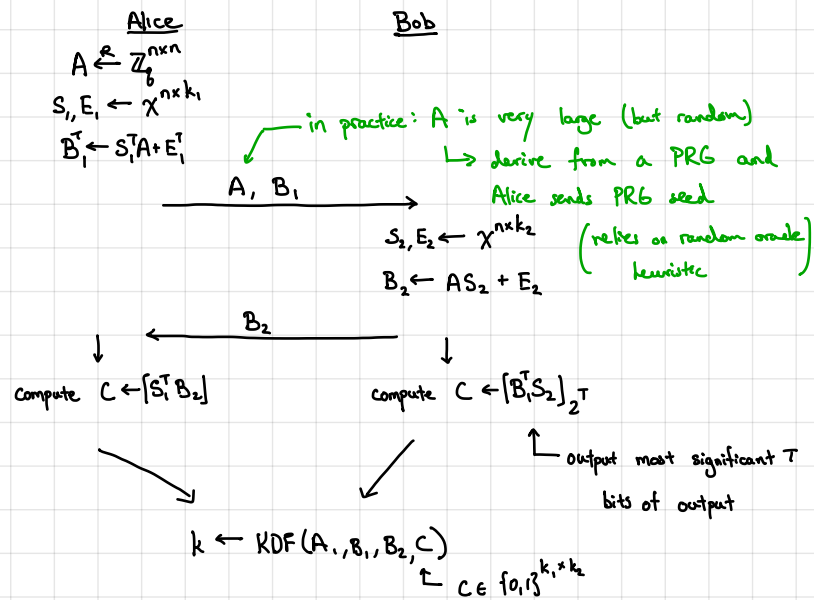 Alice Bob
A ←ᴿ ℤ_q^{n×n}
S₁, E₁ ← χ^{n×k₁}
B₁ᵀ ← S₁ᵀA + E₁ᵀ
in practice: A is very large (but random)
↳ derive from a PRG and
Alice sends PRG seed
(relies on random oracle
heuristic)
A, B₁
S₂, E₂ ← χ^{n×k₂}
B₂ ← AS₂ + E₂
B₂
compute C ← ⌈S₁ᵀB₂⌋
compute C ← ⌈B₁ᵀS₂⌋_{2^T}
output most significant T
bits of output
k ← KDF(A, B₁, B₂, C)
C ∈ {0,1}^{k₁×k₂}